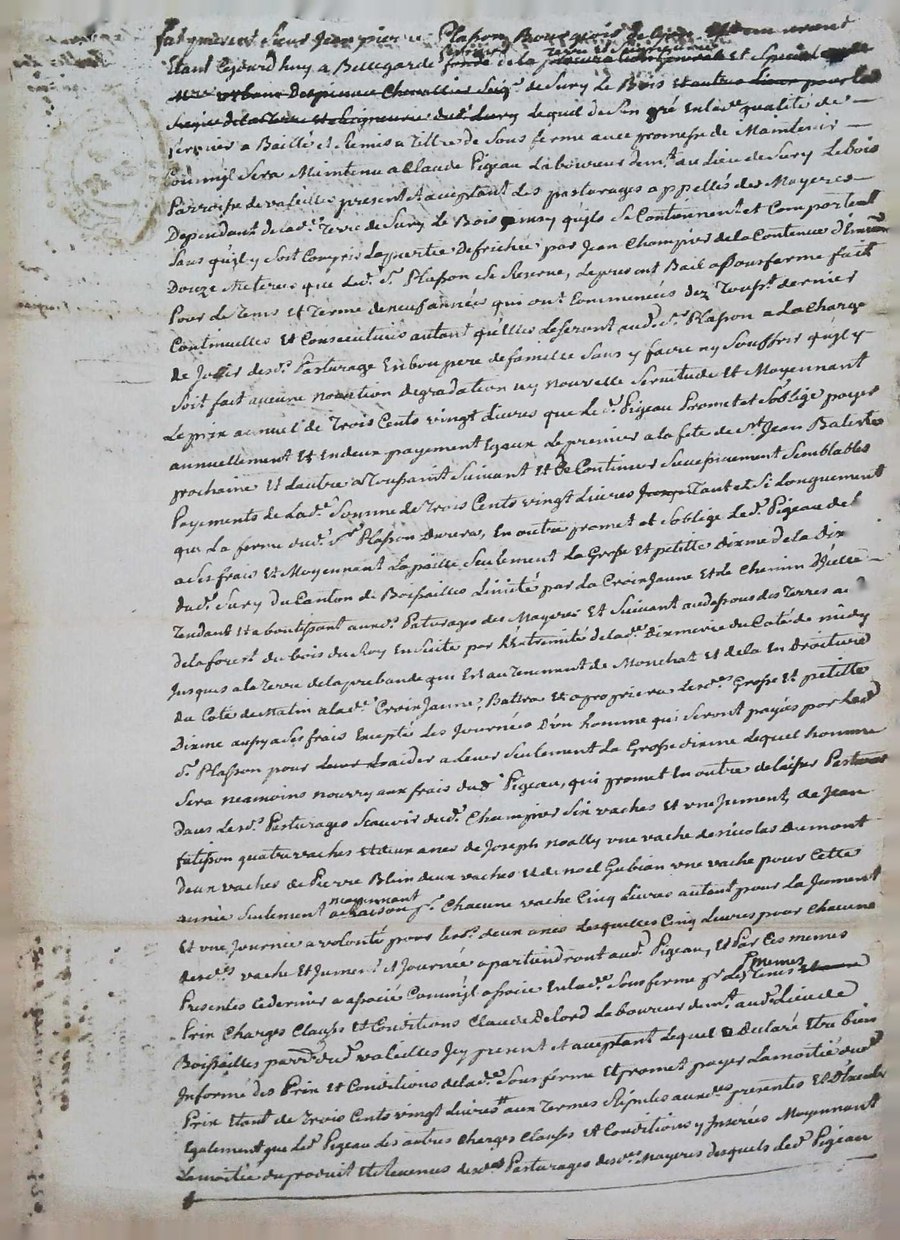 fut présent Sieur Jean pierre Plasson Bourgeois de Lyon
Etant Cejourdhuy a Bellegarde fermier de la terre et seigneurie
de Sury Le Bois
Lequel de son gré en lad.e qualité de
fermier a Baillé et Remis a Tiltre de Sous ferme avec promesse de Maintenir
Comm'il Sera Maintenu a Claude Pigeau Laboureur dem.t au Lieu de Sury Le bois
Parroisse de valeilles present et acceptant Les pasturages appellés des Mayeres
Dependant de lad.e Terre de Sury Le Bois ainsy qu'ils Se Contiennent et Comportent
Sans qu'il y Soit Compris La partie defrichée par Jean Champier de la Contenue d'Environ
Douze Meterées que Led.t S.r Plasson Se Reserve, Le present Bail a Sous ferme fait
Pour Le Tems et Terme de neuf années qui ont Commencées dez Touss.t dernier
Continuelles et Consecutives autant qu'elles Le Seront aud.t S.r Plasson a La Charge
de Jouir desd.ts Pasturage En bon pere de famille Sans y faire ny Souffrir qu'il y
Soit fait aucune novation degradation ny nouvelle Servitude Et Moyennant
Le prix annuel de Trois Cents vingt Livres que Le d.t Pigeau Promet et S'oblige payer
annuellement Et En deux payement Egaux Le premier a la fete de S.t Jean Batiste
prochaine Et L'autre a Toussaint Suivant Et de Continuer Successivement Semblables
Payements de Lad.e Somme de Trois Cents vingt Livres Tant et Si Longuement
que La ferme dud.t S.r Plasson Durera, En outre promet et S'oblige Led.t Pigeau de
a Ses frais Et Moyennant La paille Seulement La Grosse Et petitte Dixme de la Dix
dud.t Sury du Canton de Boissailles Limité par la Croix Jaune Et Le Chemin
Tendant Et aboutissant auxd.ts Paturages des Mayeres Et Suivant au dessous des Terres
de la forest du bois du Roy Ensuite par L'Extremité de lad.e Dixmerie du Coté de midy
Jusques a la Terre de la prebande qui Est au Tenement de Monchat Et de la En Droiture
Du Coté de Matin a lad.e Croix Jaune, Battra Et apropriera Lesd.tes Grosse Et petitte
Dixme aussy a Ses frais Excepté Les Journées d'un homme qui Seront payés par Led.t
S.r Plasson pour L'aider a Lever Seulement La Grosse dixme Lequel homme
Sera neamoins nourry aux frais dud.t Pigeau, qui promet En outre de laisser Pasturer
dans Lesd.ts Pasturages Scavoir dud.t Champier Six vaches et vne Jument, de Jean
fatisson quatre vaches et deux anes de Joseph noally vne vache de nicolas Dumont
deux vaches de Pierre Blein deux vaches Et de noel Gubian vne vache pour Cette
année Seulement moyennant Chacune vache Cinq Livres autant pour La Jument
Et vne Journée a volonté pour Lesd.ts deux anes Lesquelles Cinq Livres pour Chacune
desd.tes vache Et Jument Et Journée apartiendront aud.t Pigeau, Et Par Ces memes
Presentes Ce dernier a asocié Comm'il asocie En lad.e Sous ferme p.r Le memes Tems
Prix Charges Clauses Et Conditions Claude Delord Laboureur dem.t aud.t Lieu de
Boissailles parr.e dud.t valeilles Icy present Et acceptant Lequel a Declaré Etre bien
Informé des Prix Et Conditions de lad.e Sous ferme Et promet payer La moitié dud.t
Prix Etant de Trois Cents vingt Livres aux Termes Stipulés auxd.tes presentes Et
Egalement que Led.t Pigeau des autres Charges Clauses Et Conditions y Inserées Moyennant
La moitié du produit Et Revenus desd.ts Pasturages desd.tes Mayeres desquels Led.t Pigeau